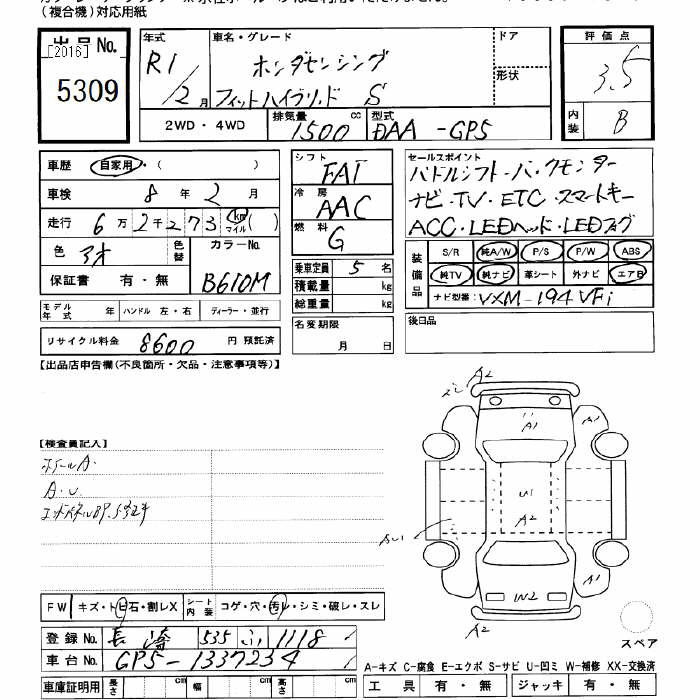 (複合機)対応用紙
出品No.
[2016]
5309
年式 R1/2月
車名・グレード
ホンダセンシング
フィットハイブリッド S
ドア
形状
評価点
3.5
内装 B
2WD・4WD
排気量 1500 cc
型式 DAA-GP5
車歴 自家用・( )
車検 8年2月
走行 6万2千273 km マイル( )
色 アオ
色替
カラーNo.
B610M
保証書 有・無
モデル年式 年 ハンドル 左・右 ディーラー・並行
リサイクル料金 8600 円 預託済
シフト FAT
冷房 AAC
燃料 G
乗車定員 5 名
積載量 kg
総重量 kg
名変期限
月 日
セールスポイント
パドルシフト・バックモニター
ナビ・TV・ETC・スマートキー
ACC・LEDヘッド・LEDフォグ
装備品
S/R 純A/W P/S P/W ABS
純TV 純ナビ 革シート 外ナビ エアB
ナビ型番: VXM-194VFi
後日品
【出品店申告欄(不良箇所・欠品・注意事項等)】
【検査員記入】
ホイールA.
A.U.
A2
A1
A1
U1
A2
AU1
A1
IN2
A2
FW キズ・トビ石・割レX
シート内装 コゲ・穴・汚レ・シミ・破レ・スレ
スペア
登録No. 長崎 535 ふ 1118
車台No. GP5-1337234
車庫証明用 長さ cm 幅 cm 高さ cm
A-キズ C-腐食 E-エクボ S-サビ U-凹ミ W-補修 XX-交換済
工具 有・無 ジャッキ 有・無